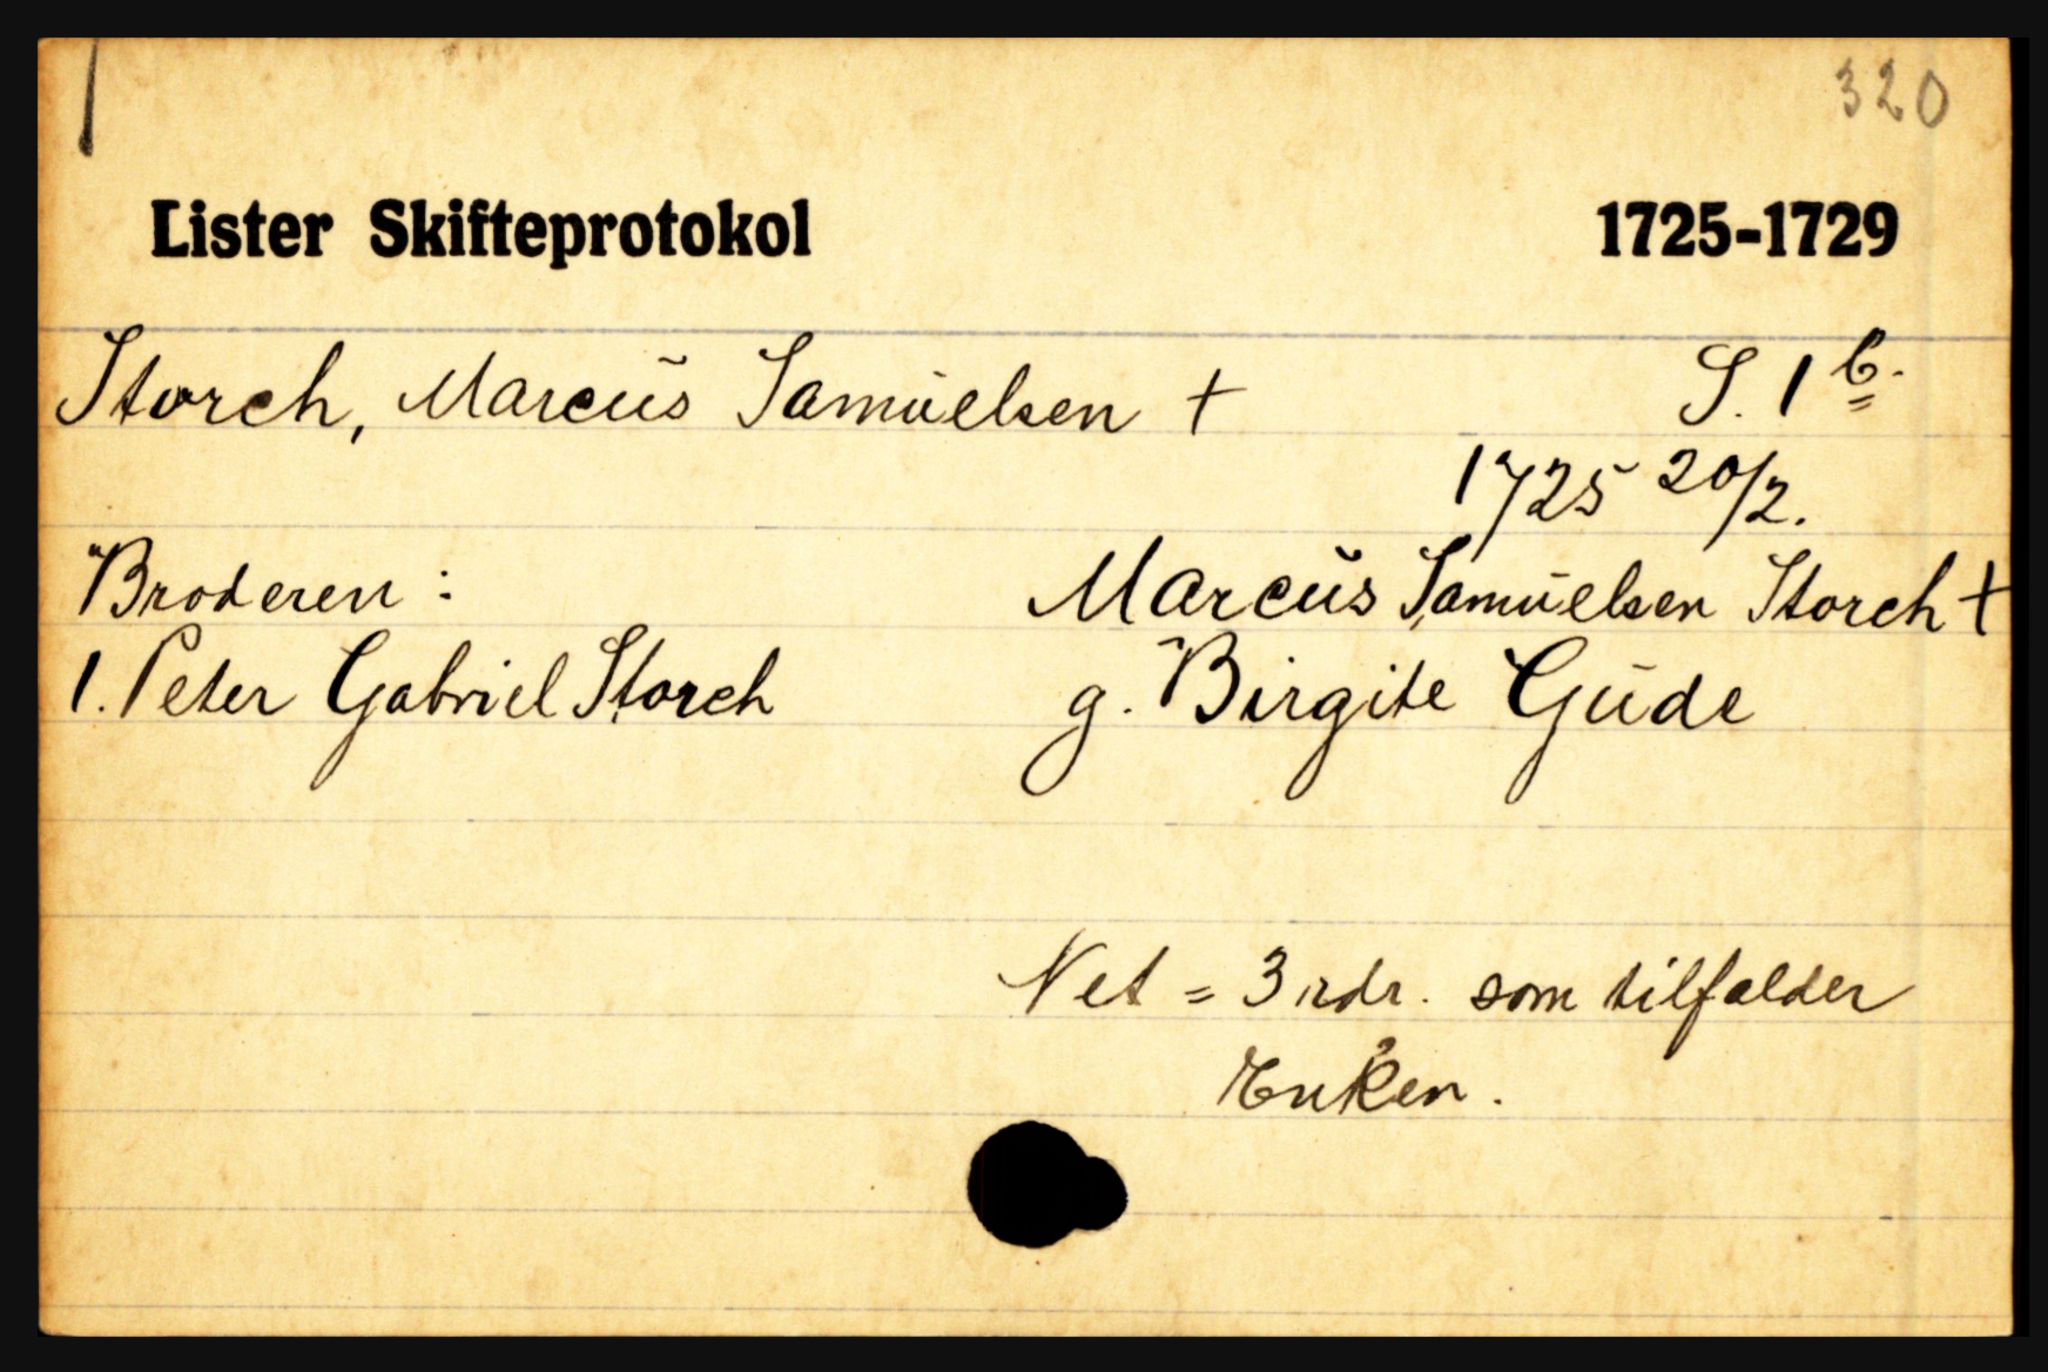 320
Lister Skifteprotokol 1725-1729
Storch, Marcus Samuelsen † S. 1 b.
1725 20/2.
Broderen: Marcus Samuelsen Storch †
1. Peter Gabriel Storch g. Birgite Gude
Net = 3 rdr. som tilfalder
Enken.